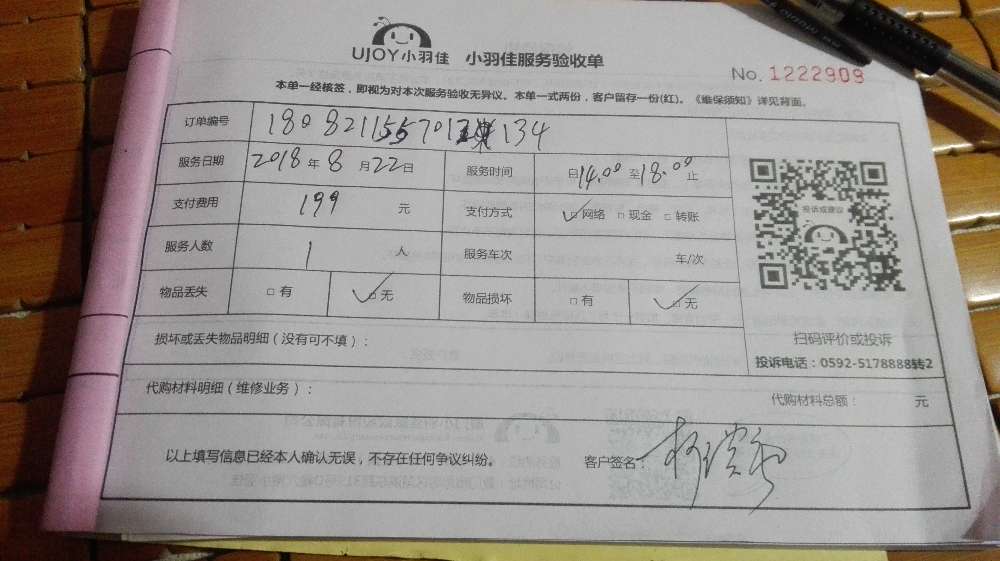 UJOY小羽佳 小羽佳服务验收单
No. 1222909
本单一经核签，即视为对本次服务验收无异议。本单一式两份，客户留存一份(红)。《维保须知》详见背面。
订单编号 134
服务日期 2018年8月22日 服务时间 自14.00至18.00止
支付费用 199 元 支付方式 ☑网络 □现金 □转账
投诉或建议
服务人数 1 人 服务车次 车/次
物品丢失 □有 ☑无 物品损坏 □有 ☑无
扫码评价或投诉
损坏或丢失物品明细（没有可不填）：
投诉电话：0592-5178888转2
代购材料明细（维修业务）： 代购材料总额： 元
以上填写信息已经本人确认无误，不存在任何争议纠纷。 客户签名：